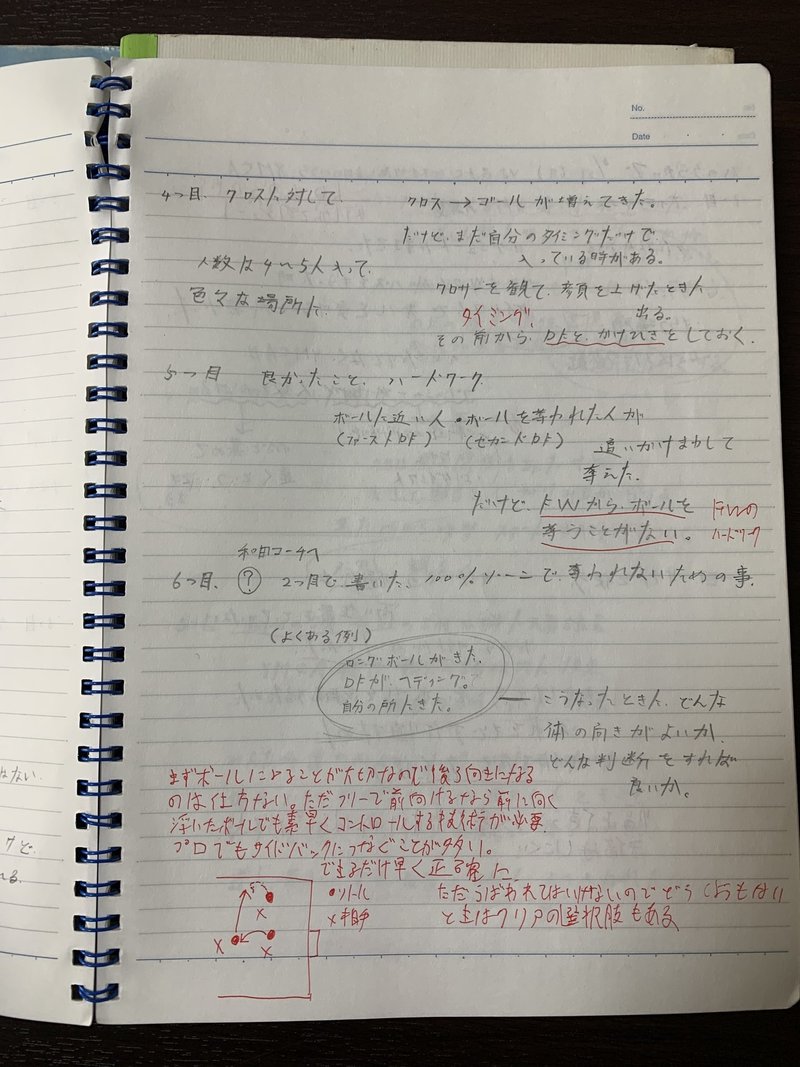 No.
Date
4つ目. クロスに対して.
クロス → ゴール が増えてきた。
だけど、まだ自分のタイミングだけで
入っている時がある。
人数は4〜5人入って.
色々な場所に.
クロサーを観て、顔を上げたときに
タイミング.
出る。
その前から、DFと、かけひきをしておく.
5つ目 良かったこと、ハードワーク.
ボールに近い人・ボールを奪われた人が
(ファーストDF) (セカンドDF)
追いかけまわして
奪えた.
だけど、FWから、ボールを
奪うことがない。
FWの
ハードワーク
和田コーチへ
6つ目. ? 2つ目で、書いた、100%ゾーンで、奪われないための事.
(よくある例)
ロングボールがきた.
DFが、ヘディング。
自分の所にきた。
こうなったときに、どんな
体の向きがよいか.
どんな判断をすれば
良いか。
まずボールによることが大切なので後ろ向きになる
のは仕方ない。ただフリーで前向けるなら前に向く
浮いたボールでも素早くコントロールする技術が必要
プロでもサイドバックにつなぐことが多い。
できるだけ早く正確に
●リトル
×相手
ただうばわれてはいけないのでどう
ときはクリアの選択肢もある